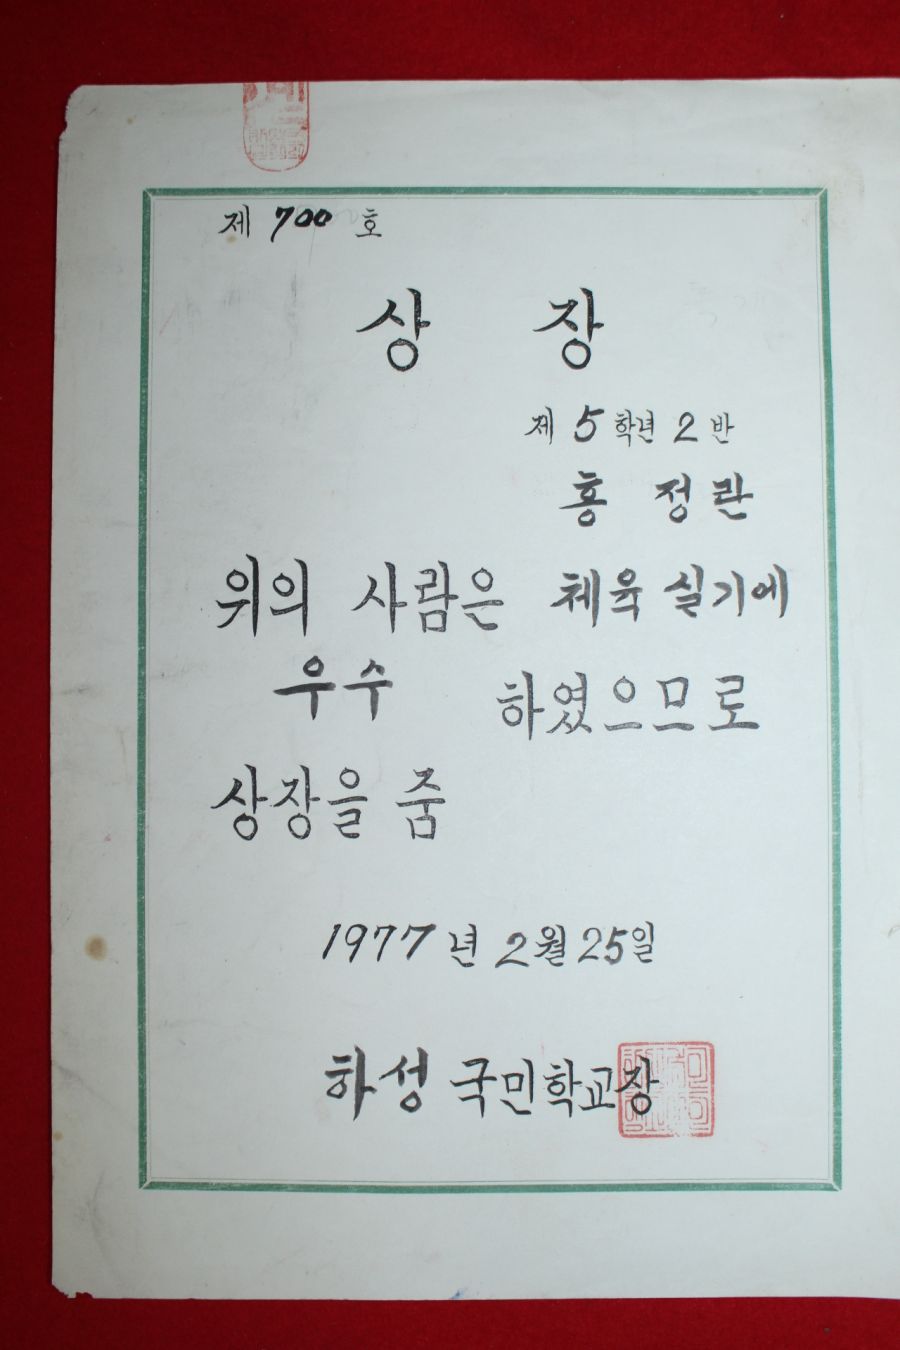 제 700 호
상 장
제 5 학년 2 반
홍 정란
위의 사람은 체육 실기에
우수 하였으므로
상장을 줌
1977 년 2월 25일
하성 국민학교장